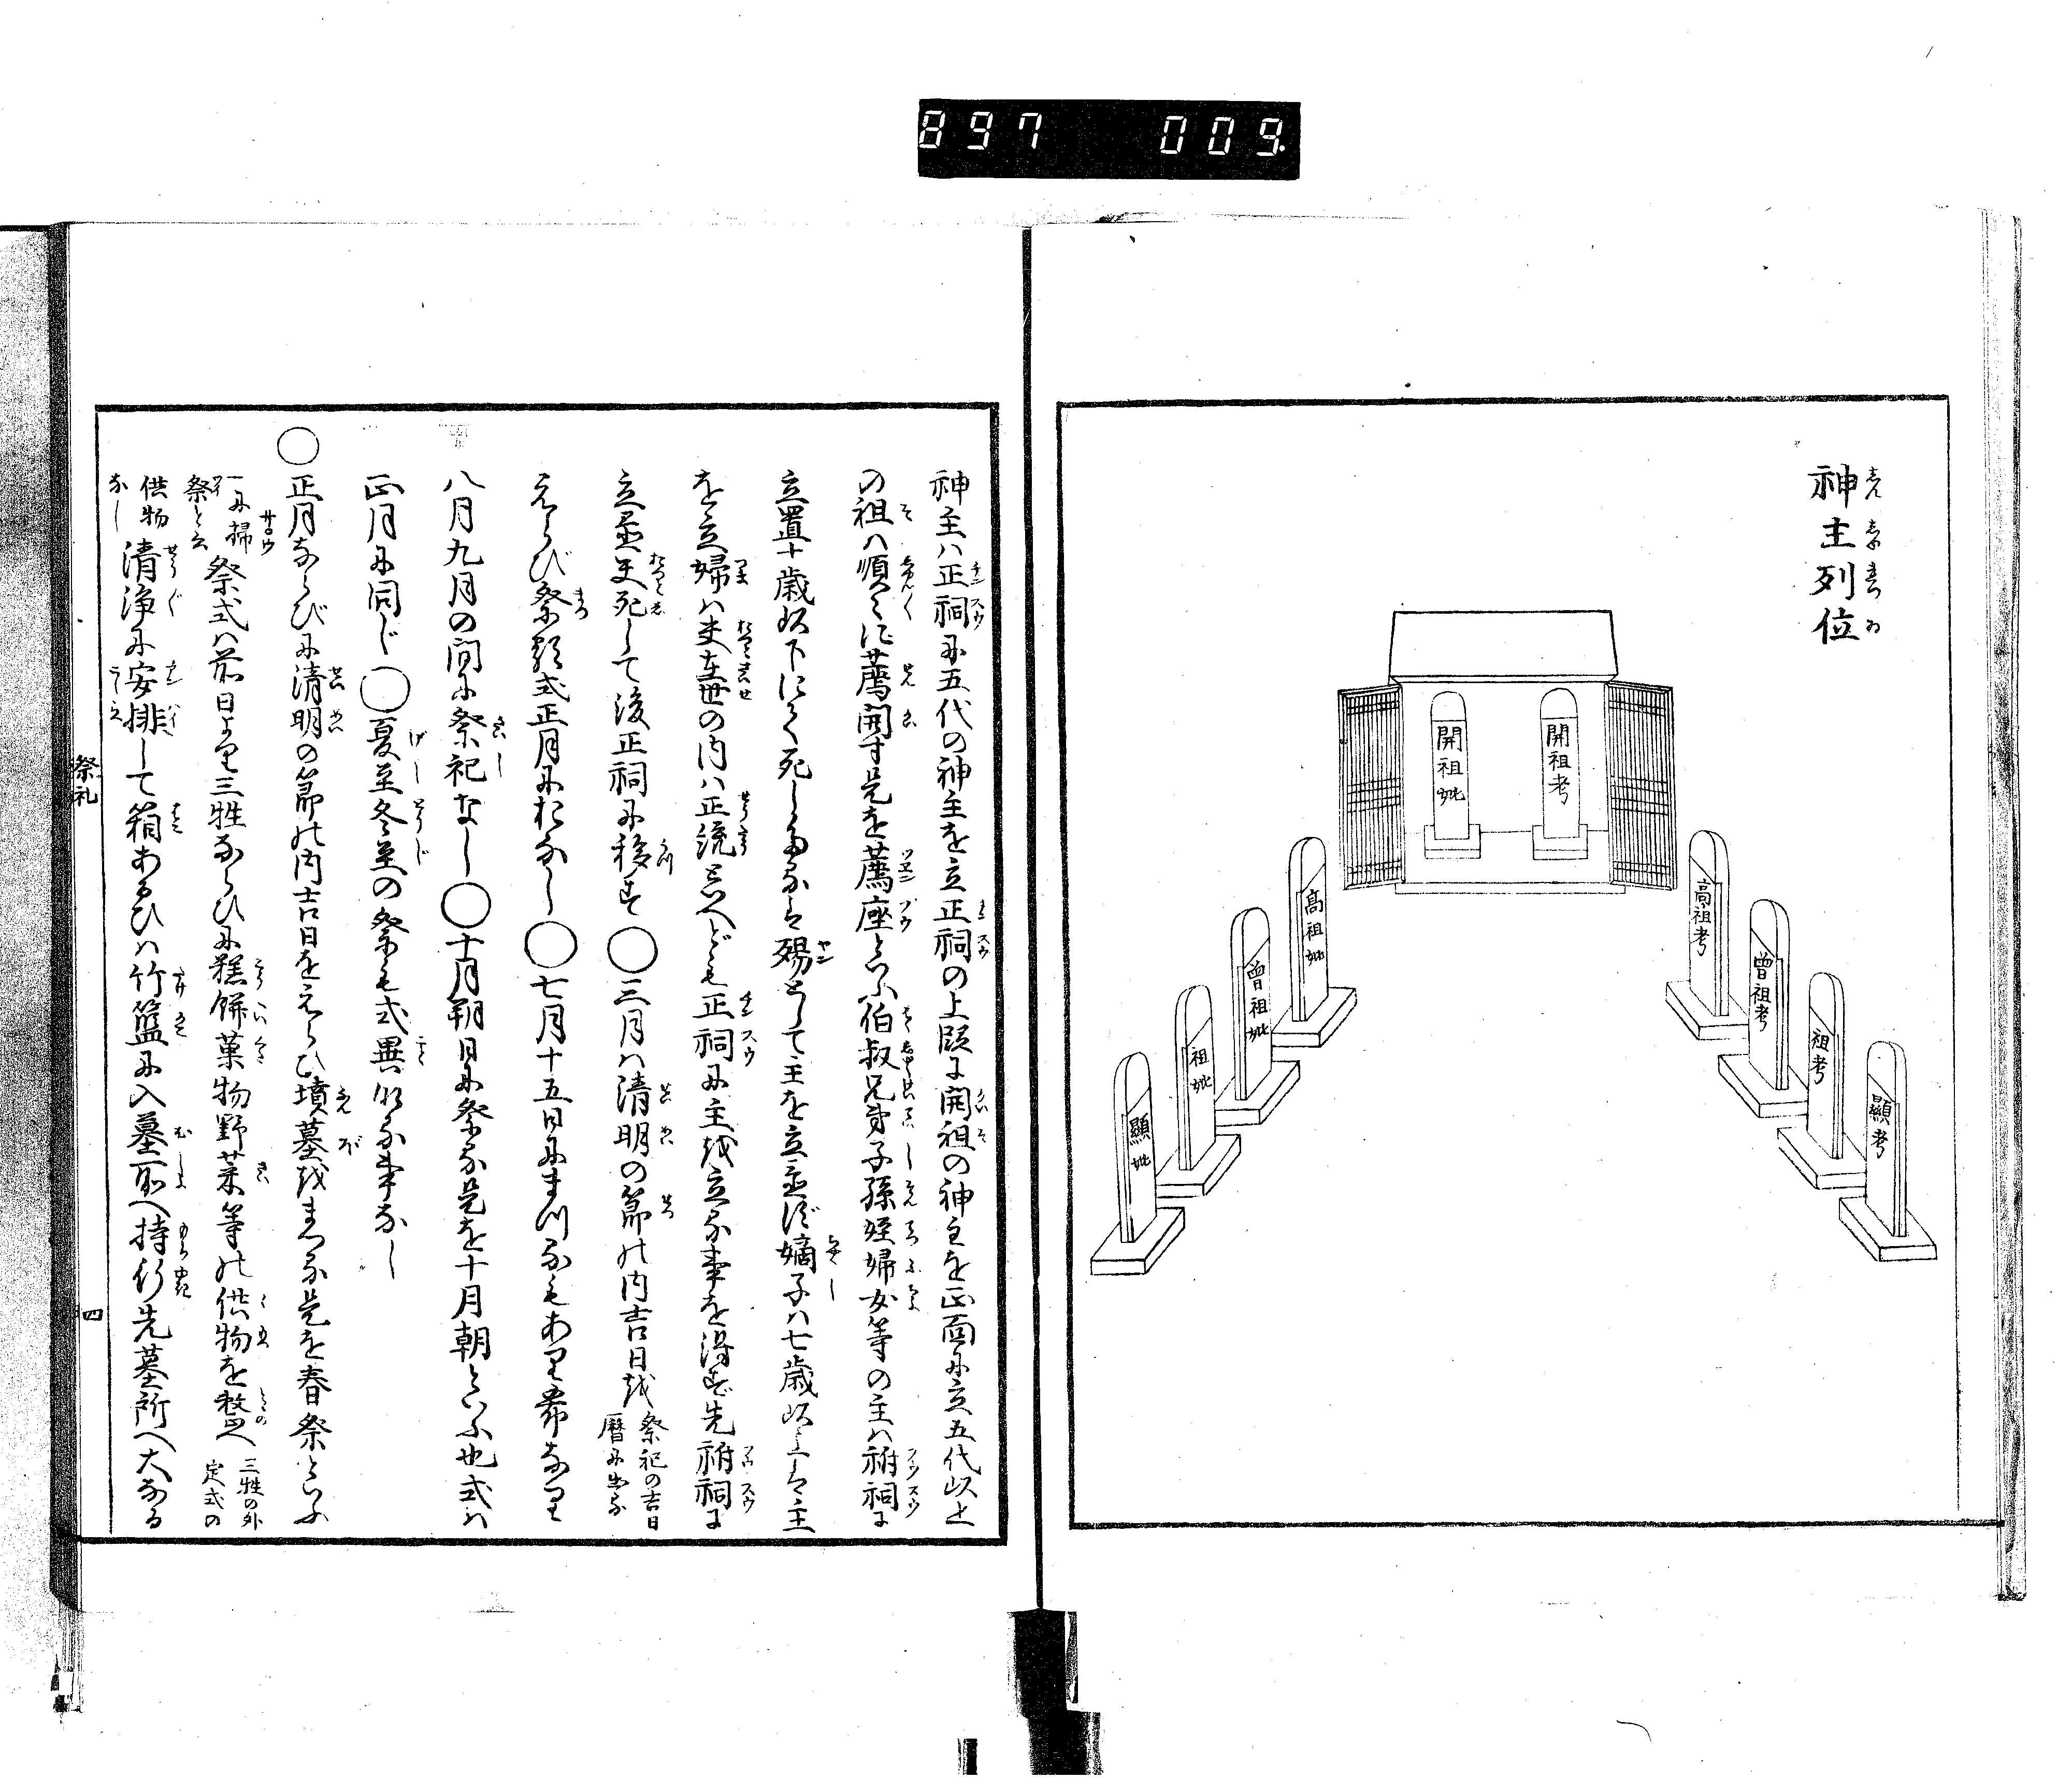 897 009.
神主列位
開祖考
開祖妣
高祖考
曾祖考
祖考
顯考
高祖妣
曾祖妣
祖妣
顯妣
神主ハ正祠に五代の神主を立正祠の上段に開祖の神主を正面に立五代以上
の祖ハ順〻に薦開す是を薦座といふ伯叔兄弟子孫姪婦女等の主ハ祔祠に
立置十歳以下にて死したるは殤として主を立並ず嫡子ハ七歳以上は主
を立婦ハ夫在世の内ハ正統といへども正祠に主を立る事を得ず先祔祠に
立置夫死して後正祠に移す○三月ハ清明の節の内吉日を
祭祀の吉日
暦に出る
えらび祭類式正月におなし○七月十五日にまつるもあり希なり
八月九月の間に祭祀なし○十月朔日に祭る是を十月朝といふ也式ハ
正月に同じ○夏至冬至の祭も式異なる事なし
○正月ならびに清明の節の内吉日をえらひ墳墓をまつる是を春祭といふ
一に掃
祭と云
祭式ハ前日より三牲ならひに糕餅菓物野菜等の供物を整へ
三牲の外
定式の
供物
なし
清浄に安排して箱あるひハ竹籃に入墓所へ持行先墓所へ大なる
祭礼
四